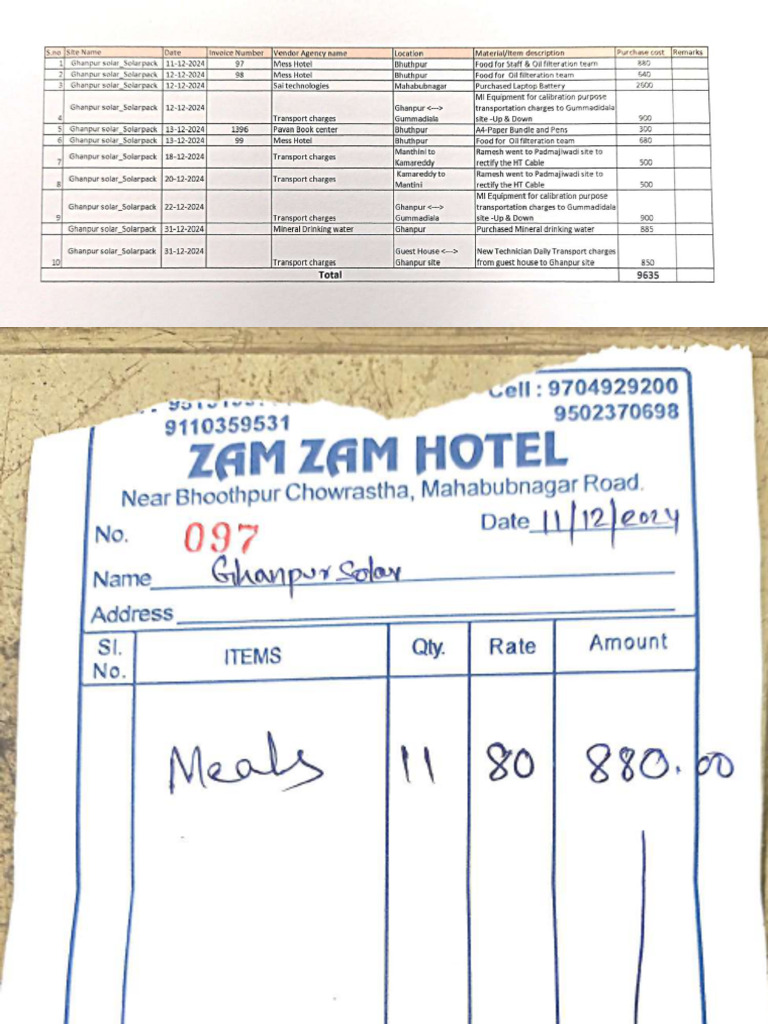 S.no Site Name Date Invoice Number Vendor Agency name Location Material/Item description Purchase cost Remarks
1 Ghanpur solar_Solarpack 11-12-2024 97 Mess Hotel Bhuthpur Food for Staff & Oil filteration team 880
2 Ghanpur solar_Solarpack 12-12-2024 98 Mess Hotel Bhuthpur Food for Oil filteration team 640
3 Ghanpur solar_Solarpack 12-12-2024 Sai technologies Mahabubnagar Purchased Laptop Battery 2600
4 Ghanpur solar_Solarpack 12-12-2024 Transport charges Ghanpur <---> Gummadiala MI Equipment for calibration purpose transportation charges to Gummadidala site -Up & Down 900
5 Ghanpur solar_Solarpack 13-12-2024 1396 Pavan Book center Bhuthpur A4-Paper Bundle and Pens 300
6 Ghanpur solar_Solarpack 13-12-2024 99 Mess Hotel Bhuthpur Food for Oil filteration team 680
7 Ghanpur solar_Solarpack 18-12-2024 Transport charges Manthini to Kamareddy Ramesh went to Padmajiwadi site to rectify the HT Cable 500
8 Ghanpur solar_Solarpack 20-12-2024 Transport charges Kamareddy to Mantini Ramesh went to Padmajiwadi site to rectify the HT Cable 500
9 Ghanpur solar_Solarpack 22-12-2024 Transport charges Ghanpur <---> Gummadiala MI Equipment for calibration purpose transportation charges to Gummadidala site -Up & Down 900
Ghanpur solar_Solarpack 31-12-2024 Mineral Drinking water Ghanpur Purchased Mineral drinking water 885
10 Ghanpur solar_Solarpack 31-12-2024 Transport charges Guest House <---> Ghanpur site New Technician Daily Transport charges from guest house to Ghanpur site 850
Total 9635
Cell : 9704929200
9110359531 9502370698
ZAM ZAM HOTEL
Near Bhoothpur Chowrastha, Mahabubnagar Road.
No. 097 Date 11/12/2024
Name Ghanpur Solar
Address
Sl. No. ITEMS Qty. Rate Amount
Meals 11 80 880.00